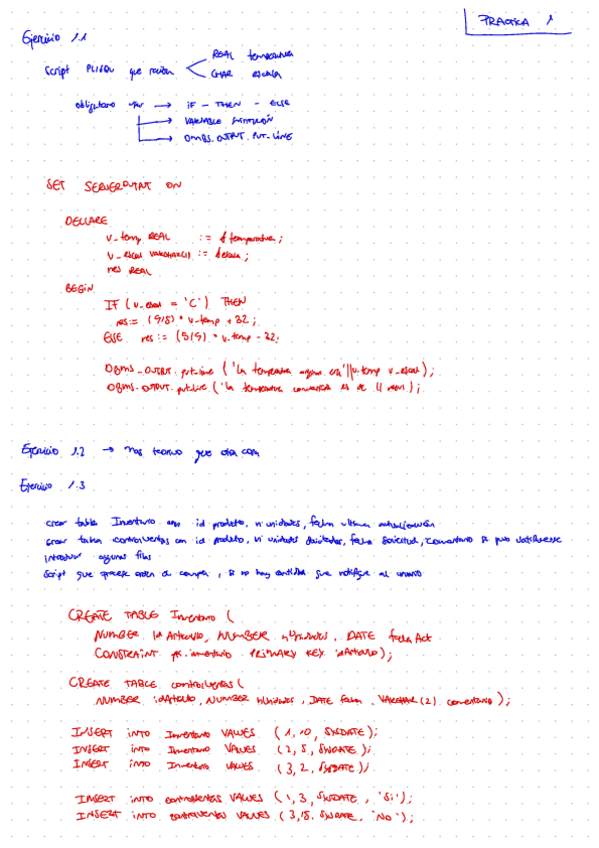 PRACTICA 1
Ejercicio 1.1
REAL temperatura
Script PL/SQL que reciba
CHAR escala
obligatorio usar → IF - THEN - ELSE
→ VARIABLE SUSTITUCIÓN
→ DMBS_OUTPUT.PUT_LINE
SET SERVEROUTPUT ON
DECLARE
v_temp REAL := &temperatura;
v_escal VARCHAR(1) := &escala;
res REAL
BEGIN
IF (v_escal = 'C') THEN
res := (9/5) * v_temp + 32;
ELSE res := (5/9) * v_temp - 32;
DBMS_OUTPUT.put_line ('La temperatura era' || v_temp v_escal);
DBMS_OUTPUT.put_line ('La temperatura convertida es de ||);
Ejercicio 1.2 → mas teorico que otra cosa
Ejercicio 1.3
crear tabla Inventario con id producto, nº unidades, fecha ultima actualización
crear tabla controlventas con id producto, nº unidades solicitadas, fecha solicitud, comentario si pudo satisfacerse
introducir algunas filas
Script que procese orden de compra, si no hay cantidad que notifique al usuario
CREATE TABLE Inventario (
NUMBER idArticulo, NUMBER nUnidades, DATE fechaAct
CONSTRAINT pk_inventario PRIMARY KEY idArticulo);
CREATE TABLE controlventas (
NUMBER idArticulo, NUMBER nUnidades, DATE fecha, VARCHAR(2) comentario);
INSERT INTO Inventario VALUES (1, 10, SYSDATE);
INSERT INTO Inventario VALUES (2, 5, SYSDATE);
INSERT INTO Inventario VALUES (3, 2, SYSDATE);
INSERT INTO controlventas VALUES (1, 3, SYSDATE, 'Si');
INSERT INTO controlventas VALUES (3, 15, SYSDATE, 'No');